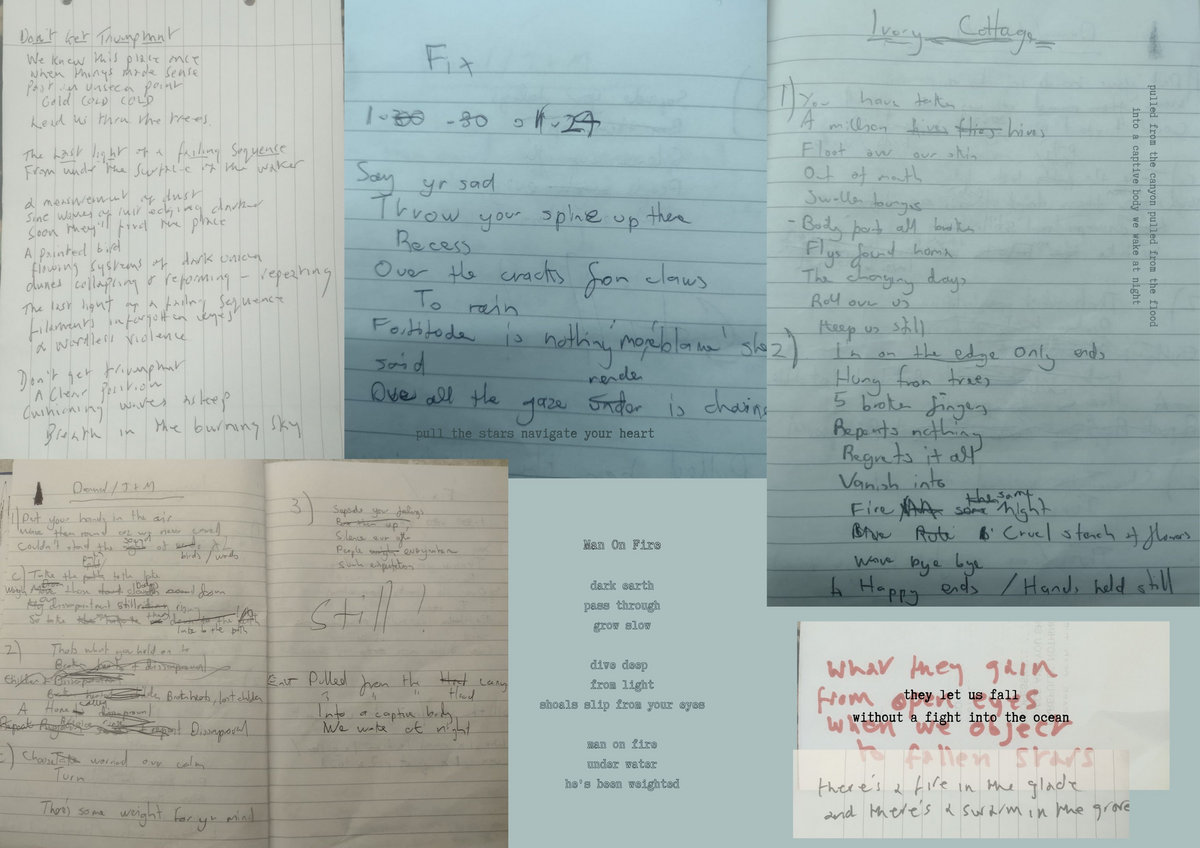 Don't Get Triumphant
We knew this place once
when things made sense
Past in unseen point
Cold COLD COLD
Lead us thru the trees.
The Last light of a failing Sequence
From under the surface of the water
a measurement of dust
sine waves of just edging darker
soon they'll find the place
A painted bird
flowing systems of dark union
dunes collapsing & reforming - repeating
The last light of a failing Sequence
filaments in forgotten verges
a wordless violence
Don't get triumphant
A Clear Position
Cushioning waves asleep
Breath in the burning sky
Fix
Say yr sad
Throw your spine up there
Recess
Over the cracks from claws
To rain
Fortitude is nothing 'more blame' she
said
render
Over all the gaze under is chasing
pull the stars navigate your heart
Ivory Cottage
1) You have taken
A million lives flies hives
Float over our skin
Out of mouth
Swollen tongues
- Body parts all broken
Flys found home
The changing days
Roll over us
Keep us still
2) in on the edge only ends
Hung from trees
5 broken fingers
Repents nothing
Regrets it all
Vanish into
Fire some night
Cruel stench of flowers
wave bye bye
Happy ends / Hands held still
pulled from the canyon pulled from the flood
into a captive body we wake at night
Demand / J + M
1) Put your hands in the air
wave them round
Couldn't stand the of
birds / words
c) Take the path to the lake
disappointment still
So take
path
2) Thats what you held on to
Broken hearts, lost children
A Home
Disapproval
c) worried our calm
Turn
There's some weight for yr mind
3)
your feelings
Silence our
People everywhere
Such
Still!
Pulled from the
flood
Into a captive body
We wake at night
Man On Fire
dark earth
pass through
grow slow
dive deep
from light
shoals slip from your eyes
man on fire
under water
he's been weighted
what they gain
from open eyes
when we object
to fallen stars
they let us fall
without a fight into the ocean
there's a fire in the glade
and there's a swarm in the grove